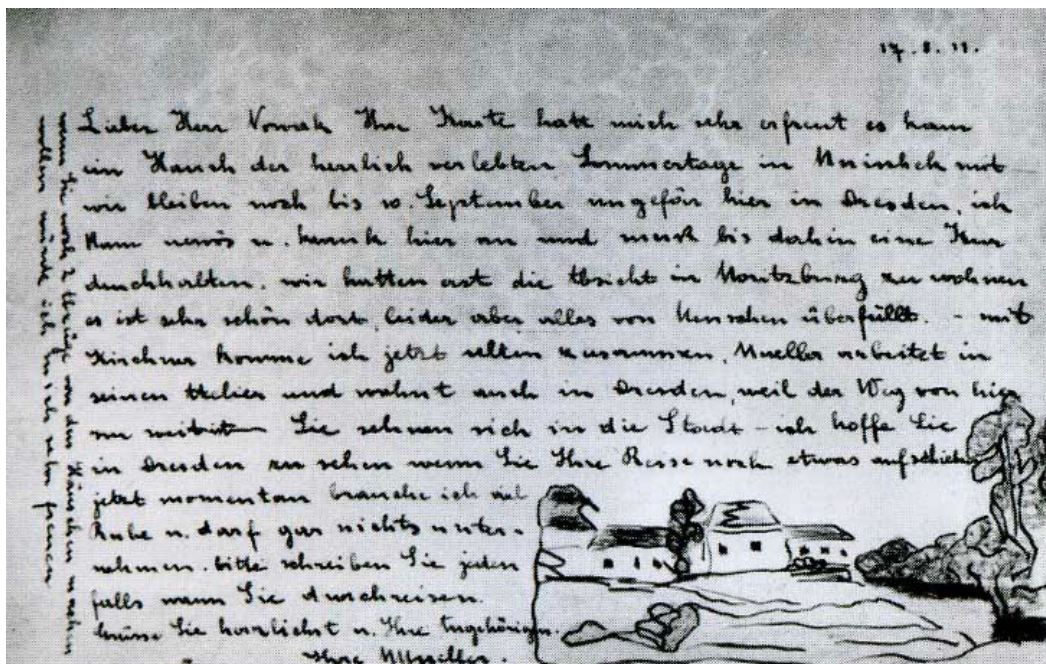 17.8.11.
Lieber Herr Nowak Ihre Karte hatt mich sehr erfreut es kam
ein Hauch der herrlich verlebten Sommertage in Mnischek mit
wir bleiben noch bis 10. September ungefär hier in Dresden, ich
kam nervös u. krank hier an und muss bis dahin eine Kur
durchhalten. wir hatten erst die Absicht in Moritzburg zu wohnen
es ist sehr schön dort, leider aber alles von Menschen überfüllt. - mit
Kirchner komme ich jetzt selten zusammen, Mueller arbeitet in
seinen Atelier und wohnt auch in Dresden, weil der Weg von hier
zu weit ist Sie sehnen sich in die Stadt - ich hoffe Sie
in Dresden zu sehen wenn Sie Ihre Reise noch etwas aufschieben
jetzt momentan brauche ich viel
Ruhe u. darf gar nichts unter-
nehmen. bitte schreiben Sie jeden
falls wann Sie durchreisen.
Grüsse Sie herzlichst u. Ihre Angehörigen.
Ihre
wenn Sie noch 2 Abzüge von den Häuschen machen
wollen würde ich mich sehr freuen